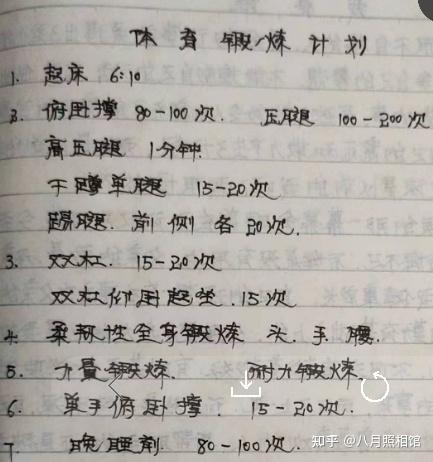 体育锻炼计划
1. 起床 6:10
2. 俯卧撑 80-100次. 压腿 100-200次
高压腿 1分钟.
下蹲单腿 15-20次
踢腿. 前 侧 各 20次.
3. 双杠. 15-20次
双杠仰卧起坐. 15次
4. 柔韧性全身锻炼 头. 手. 腰.
5. 力量锻炼. 耐力锻炼
6. 单手俯卧撑. 15-20次.
7. 80-100次.
知乎 @八月照相馆